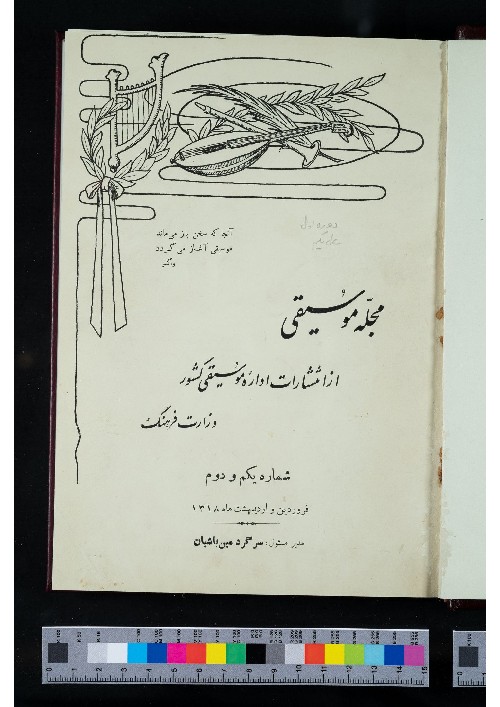 آنجا که سخن باز می‌ماند
موسیقی آغاز می‌گردد
واگنر
دوره اول
مجلّه موسیقی
از انتشارات ادارهٔ موسیقی کشور
وزارت فرهنگ
شماره یکم و دوم
فروردین و اردیبهشت ماه ۱۳۱۸
مدیر مسئول: سرگرد مین باشیان
0 1 2 3 4 5 6 7 8 9 10 11 12 13 14 15